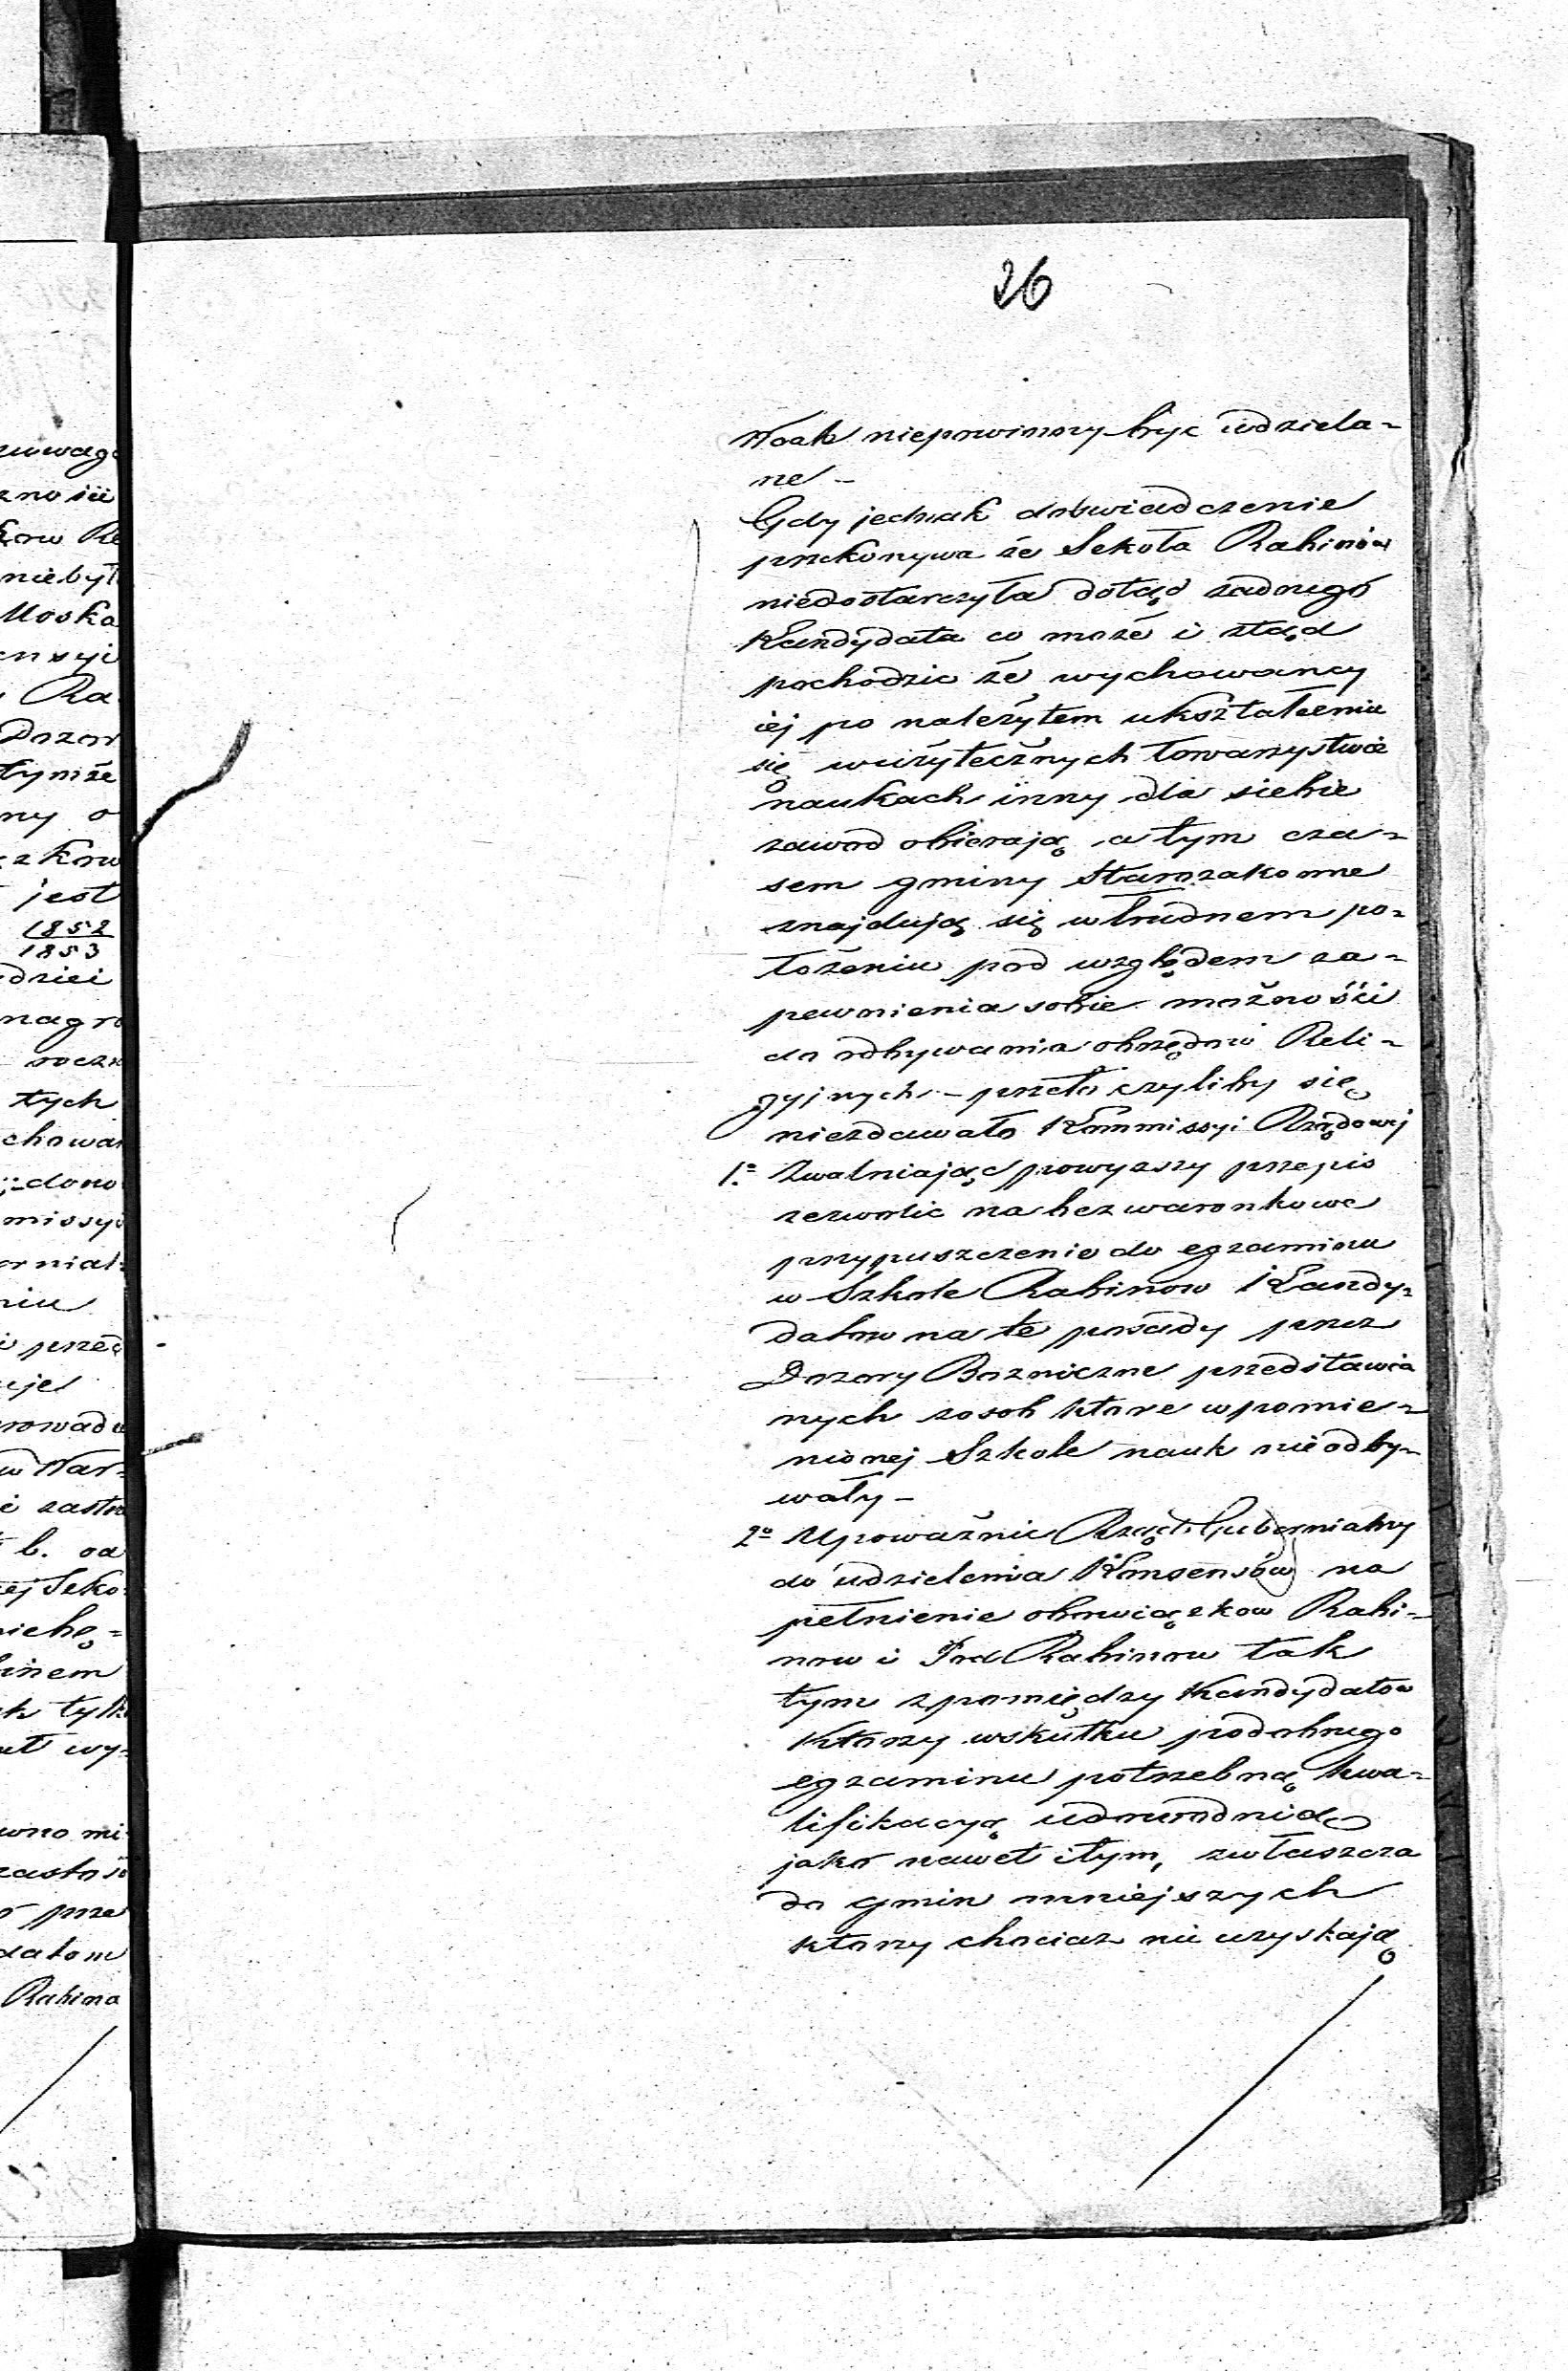 26
niepowinny być udziela-
ne -
Gdy jednak doswiadczenie
przekonywa że Szkoła Rabinów
niedostarczyła dotąd żadnego
Kandydata co może i ztąd
pochodzic że wychowancy
iej po należytem ukształceniu
się wużytecznych towarzystwie
naukach inny dla siebie
zawod obierają, a tym cza-
sem gminy Starozakonne
znajdują się w trudnem po-
łożeniu pod względem za-
pewnienia sobie możności
do odbywania obrzędow Reli-
gyjnych - przeto czyliby się
niezdawało Kommissyi Rządowej
1o Zwalniając powyższy przepis
zezwolic na bezwarunkowe
przypuszczenie do egzaminu
w Szkole Rabinow Kandy-
datow na te posady przez
Dozory Boznicze przedstawia
nych zosob ktore wpomie-
nionej Szkole nauk nieodby-
wały -
2o Upoważnic Rząd Gubernialny
do udzielenia Konsensów na
pełnienie obowiązkow Rabi-
now i Pod Rabinow tak
tym zpomiędzy Kandydatow
ktorzy wskutku podobnego
egzaminu potrzebną kwa-
lifikacyą udowodnią
jako nawet i tym, zwłaszcza
do gmin mniejszych
ktorzy chociaz nie uzyskają
uwag
znosii
kow Ra
niebył
Moska
ensyi
Ra
Dozor
tymże
ny o
zkow
jest
1852
1853
dziei
nagro
roczn
tych
chowan
dono
missyi
ornial
niu
i przed
uje
rowadz
w War-
i zasto
b. od
ej Szko
niebę-
binem
k tylk
at wy-
wno mi
zasto
o prze
datom
Rabina